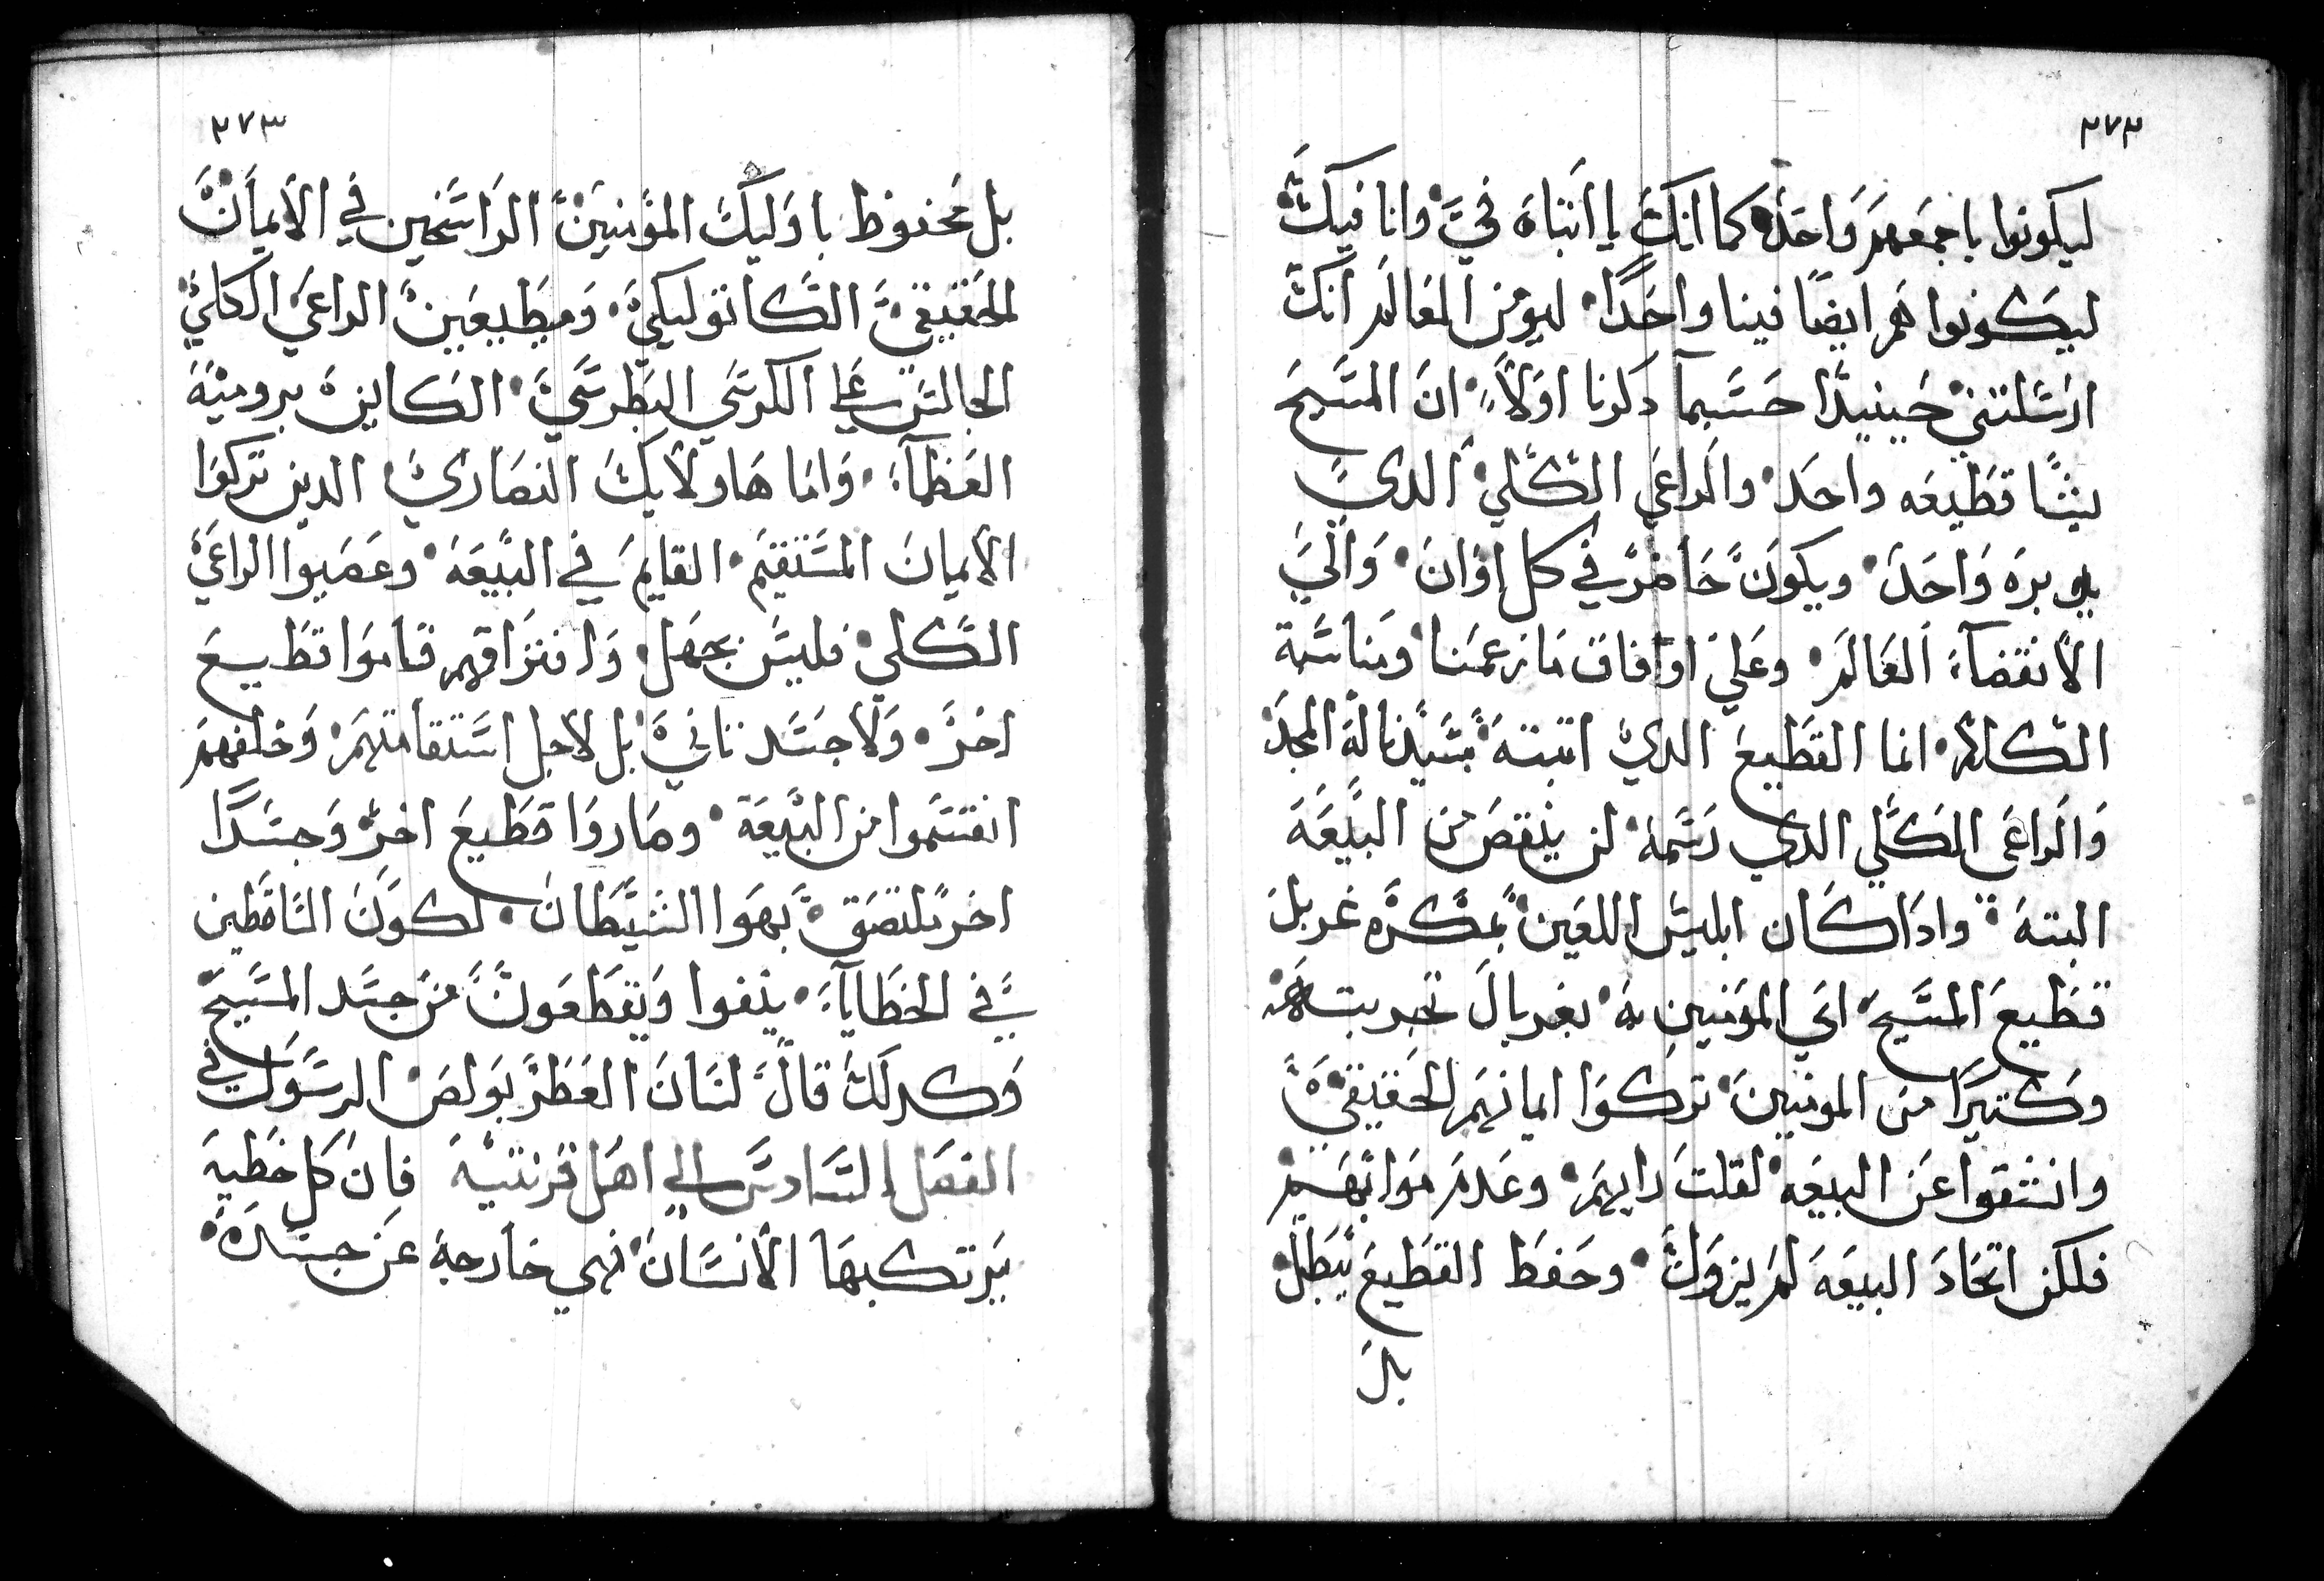 ٢٧٢
ليكونوا باجمعهم واحد كما انك يا ابتاه فيّ وانا فيك
ليكونوا هم ايضًا فينا واحدًا ليومن العالم انك
ارسلتني حينيدًا حسبما دكرنا اولاً ان المسيح
يشا قطيعه واحد والراعي الكلي الدي
يدبره واحد ويكون حاضر في كل اوان والي
الانقضآء العالم وعلي اوفاق ما زعمنا ومناسبة
الكلام انما القطيع الدي اتبته سيدنا له المجد
والراعي الكلي الدي رسمه لن ينقص من البيعه
البته وادا كان ابليس اللعين بمكره غربل
قطيع المسيح اي المومنين به بغربال تجريبته
وكتيرًا من المومنين تركوا ايمانهم الحقيقي
وانشقوا عن البيعه لقلت رايهم وعدم صوابهم
فلكن اتحاد البيعه لم يزول وحفظ القطيع يبطل
بل
٢٧٣
بل محفوظ باوليك المومنين الراسخين في الايمان
الحقيقي الكاتوليكي ومطيعين الراعي الكلي
الجالس علي الكرسي البطرسي الكاينه برومية
العظمآء واما هاولايك النصاري الدين تركوا
الايمان المستقيم القايم في البيعه وعصيوا الراعي
الكلي فليس بجهل وافتراقهم قاموا قطيع
اخر ولا جسد تاني بل لاجل استقامتهم وخلفهم
انقسموا من البيعة وصاروا قطيع اخر وجسدًا
اخر ملتصق بهوا الشيطان لكون الساقطين
في الخطايآء ينفوا ويقطعون من جسد المسيح
وكدلك قال لسان العطر بولص الرسول في
الفصل السادس الي اهل قرنتيه فان كل خطيه
يرتكبها الانسان فهي خارجة عن جسده